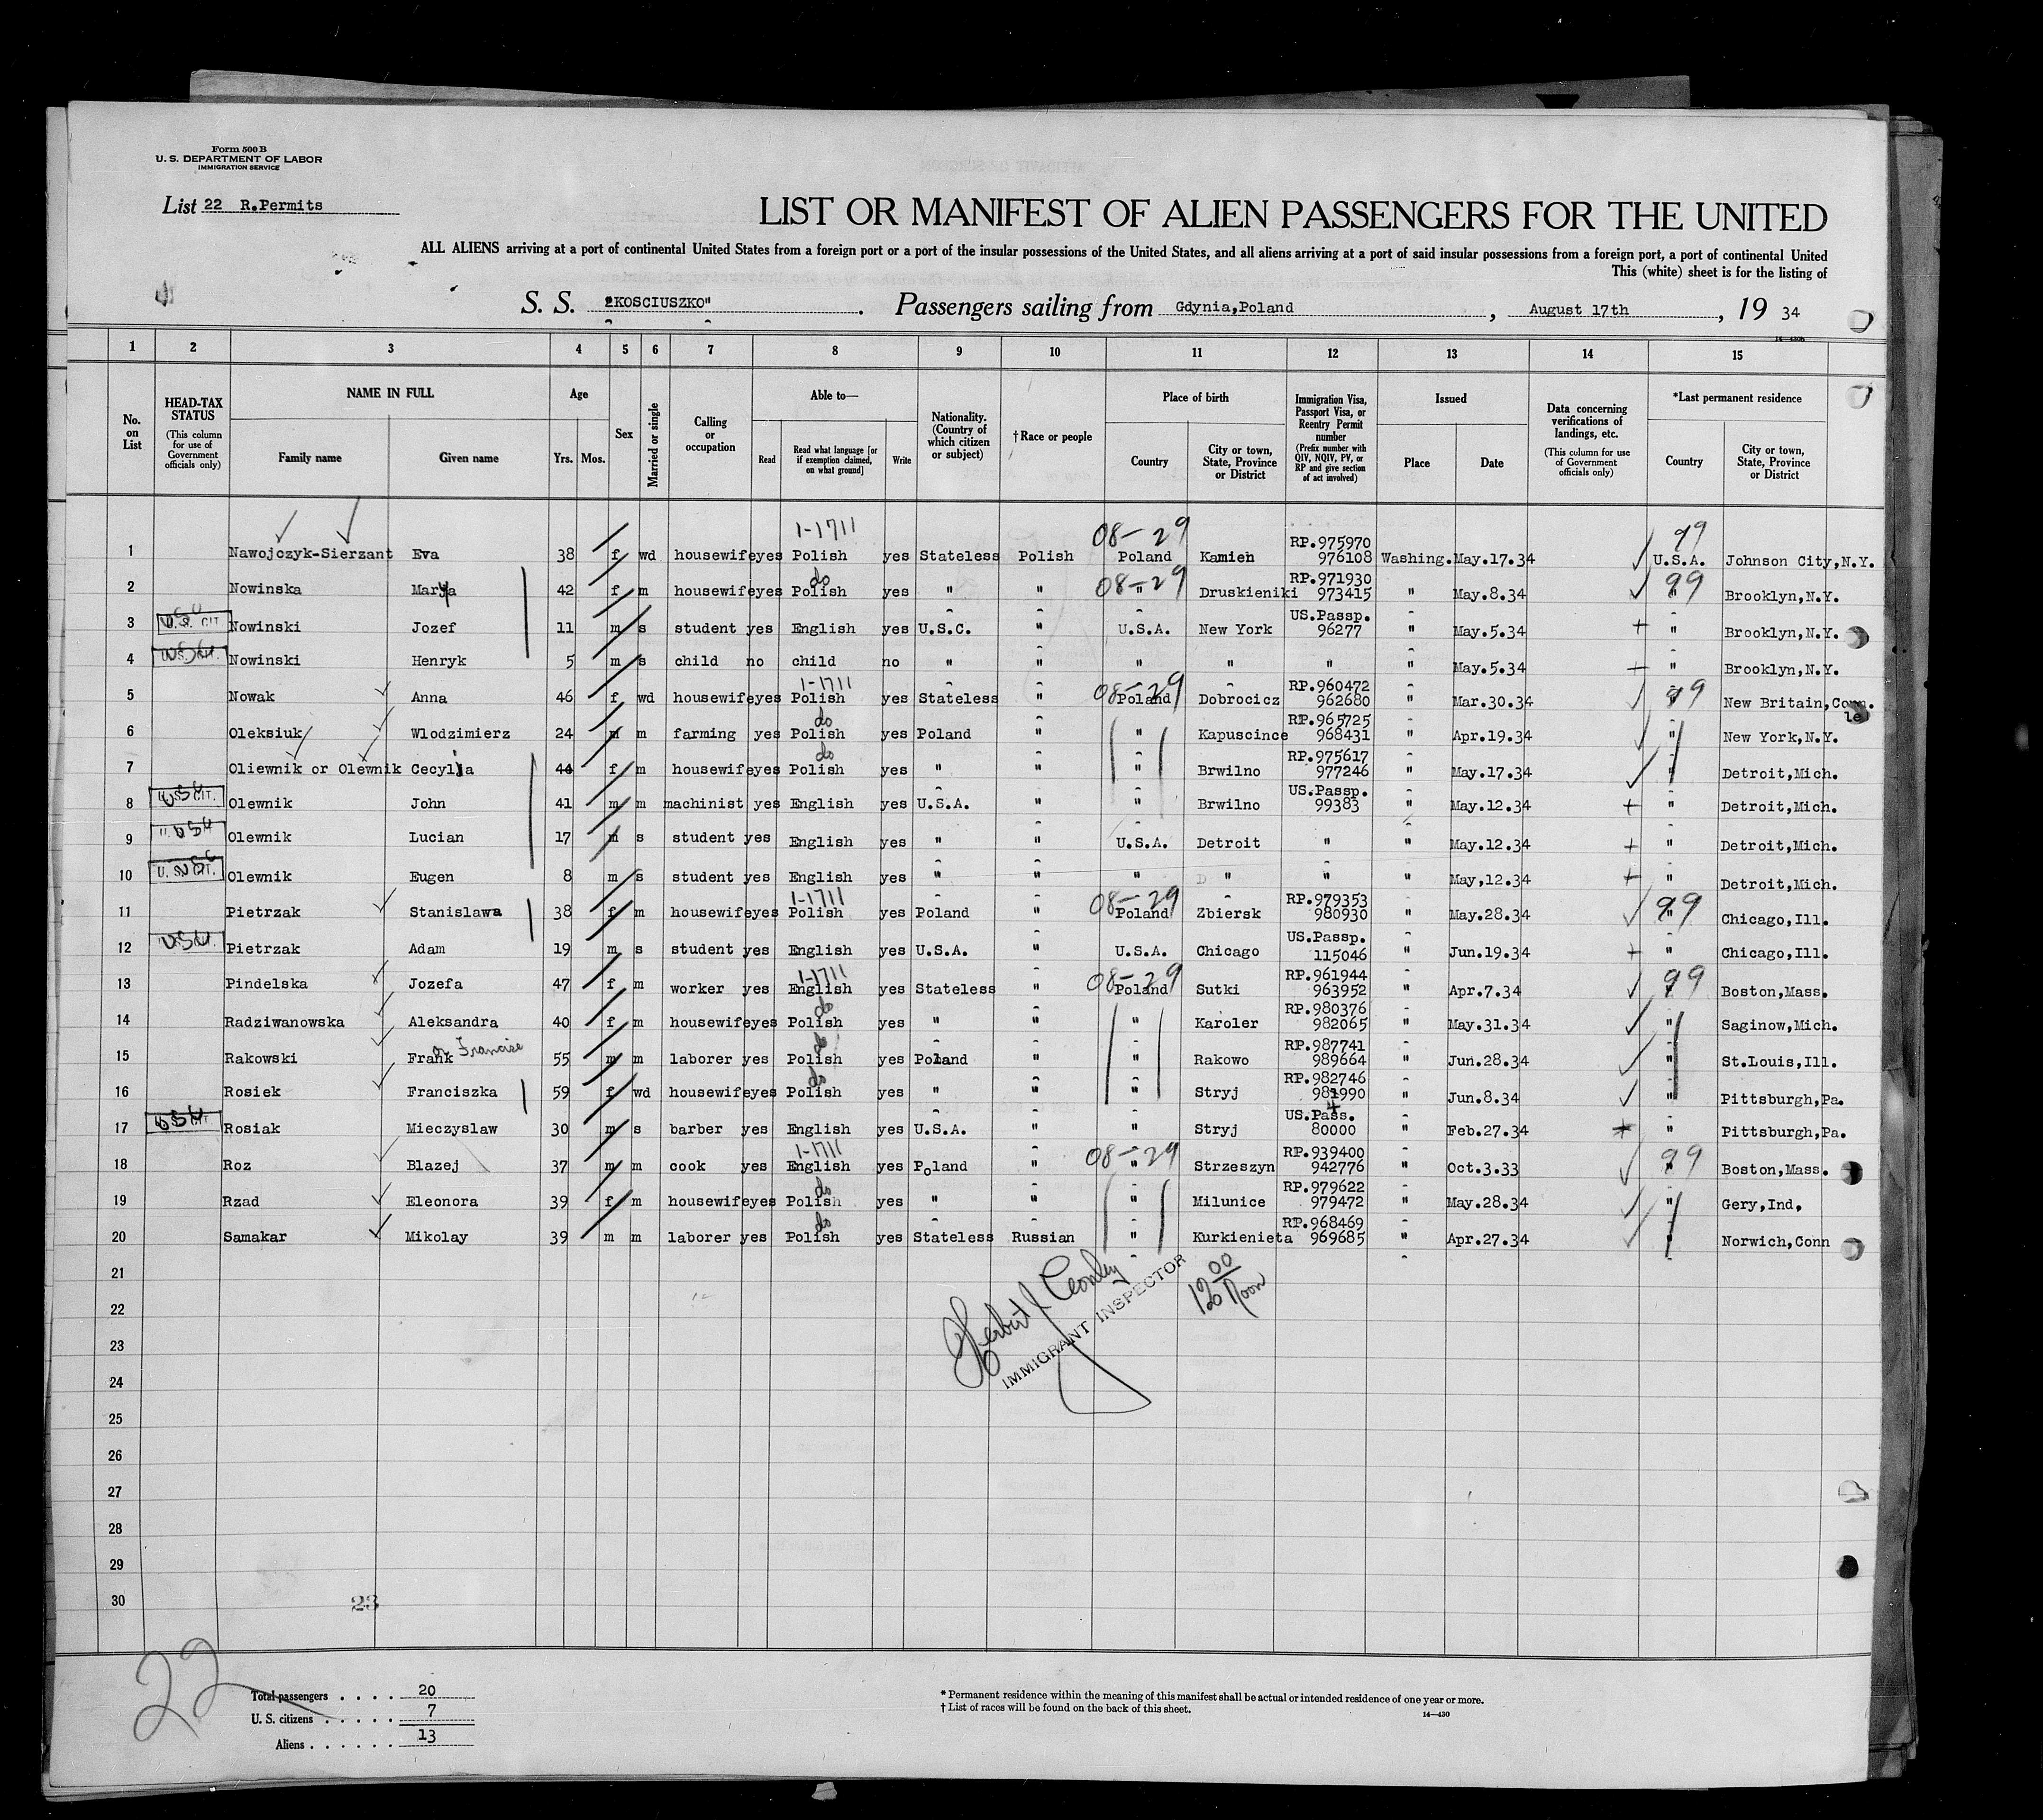 Form 500 B
U. S. DEPARTMENT OF LABOR
IMMIGRATION SERVICE
List 22 R.Permits
LIST OR MANIFEST OF ALIEN PASSENGERS FOR THE UNITED
ALL ALIENS arriving at a port of continental United States from a foreign port or a port of the insular possessions of the United States, and all aliens arriving at a port of said insular possessions from a foreign port, a port of continental United
This (white) sheet is for the listing of
S. S. "KOSCIUSZKO" . Passengers sailing from Gdynia,Poland , August 17th , 19 34
1 2 3 4 5 6 7 8 9 10 11 12 13 14 15
No. on List
HEAD-TAX STATUS (This column for use of Government officials only)
NAME IN FULL
Family name Given name
Age
Yrs. Mos.
Sex
Married or single
Calling or occupation
Able to—
Read
Read what language [or if exemption claimed, on what ground]
Write
Nationality. (Country of which citizen or subject)
†Race or people
Place of birth
Country
City or town, State, Province or District
Immigration Visa, Passport Visa, or Reentry Permit number (Prefix number with QIV, NQIV, PV, or RP and give section of act involved)
Issued
Place Date
Data concerning verifications of landings, etc. (This column for use of Government officials only)
*Last permanent residence
Country
City or town, State, Province or District
1-1711 08-29 99
RP.975970
1 Nawojczyk-Sierzant Eva 38 f wd housewife yes Polish yes Stateless Polish Poland Kamien 976108 Washing. May.17.34 U.S.A. Johnson City,N.Y.
do 08-29 RP.971930 99
2 Nowinska Marya 42 f m housewife yes Polish yes " " " Druskieniki 973415 " May.8.34 " Brooklyn,N.Y.
U.S. CIT US.Passp.
3 Nowinski Jozef 11 m s student yes English yes U.S.C. " U.S.A. New York 96277 " May.5.34 + " Brooklyn,N.Y.
4 Nowinski Henryk 5 m s child no child no " " " " " May.5.34 + " Brooklyn,N.Y.
1-1711 08-29 RP.960472 99
5 Nowak Anna 46 f wd housewife yes Polish yes Stateless " Poland Dobrocicz 962680 " Mar.30.34 New Britain,Conn.
do RP.965725
6 Oleksiuk Wlodzimierz 24 m m farming yes Polish yes Poland " " Kapuscince 968431 " Apr.19.34 " New York,N.Y.
do RP.975617
7 Oliewnik or Olewnik Cecylja 44 f m housewife yes Polish yes " " " Brwilno 977246 " May.17.34 " Detroit,Mich.
US.Passp.
8 Olewnik John 41 m m machinist yes English yes U.S.A. " " Brwilno 99383 " May.12.34 + " Detroit,Mich.
9 Olewnik Lucian 17 m s student yes English yes " " U.S.A. Detroit " " May.12.34 + " Detroit,Mich.
10 Olewnik Eugen 8 m s student yes English yes " " " " " " May,12.34 + " Detroit,Mich.
1-1711 08-29 RP.979353 99
11 Pietrzak Stanislawa 38 f m housewife yes Polish yes Poland " Poland Zbiersk 980930 " May.28.34 " Chicago,Ill.
US.Passp.
12 Pietrzak Adam 19 m s student yes English yes U.S.A. " U.S.A. Chicago 115046 " Jun.19.34 + " Chicago,Ill.
1-1711 08-29 RP.961944 99
13 Pindelska Jozefa 47 f m worker yes English yes Stateless " Poland Sutki 963952 " Apr.7.34 " Boston,Mass.
do RP.980376
14 Radziwanowska Aleksandra 40 f m housewife yes Polish yes " " " Karoler 982065 " May.31.34 " Saginow,Mich.
do RP.987741
15 Rakowski Frank 55 m m laborer yes Polish yes Poland " " Rakowo 989664 " Jun.28.34 " St.Louis,Ill.
do RP.982746
16 Rosiek Franciszka 59 f wd housewife yes Polish yes " " " Stryj 984990 " Jun.8.34 " Pittsburgh,Pa.
US.Pass.
17 Rosiak Mieczyslaw 30 m s barber yes English yes U.S.A. " " Stryj 80000 " Feb.27.34 + " Pittsburgh,Pa.
1-1711 08-29 RP.939400 99
18 Roz Blazej 37 m m cook yes English yes Poland " " Strzeszyn 942776 " Oct.3.33 " Boston,Mass.
do RP.979622
19 Rzad Eleonora 39 f m housewife yes Polish yes " " " Milunice 979472 " May.28.34 " Gery,Ind,
do RP.968469
20 Samakar Mikolay 39 m m laborer yes Polish yes Stateless Russian " Kurkienieta 969685 " Apr.27.34 " Norwich,Conn
21
22
23
24
25
26
27
28
29
30
IMMIGRANT INSPECTOR
12 00 Noon
23
22
Total passengers . . . . 20
U. S. citizens . . . . . 7
Aliens . . . . . . 13
* Permanent residence within the meaning of this manifest shall be actual or intended residence of one year or more.
† List of races will be found on the back of this sheet.
14—430